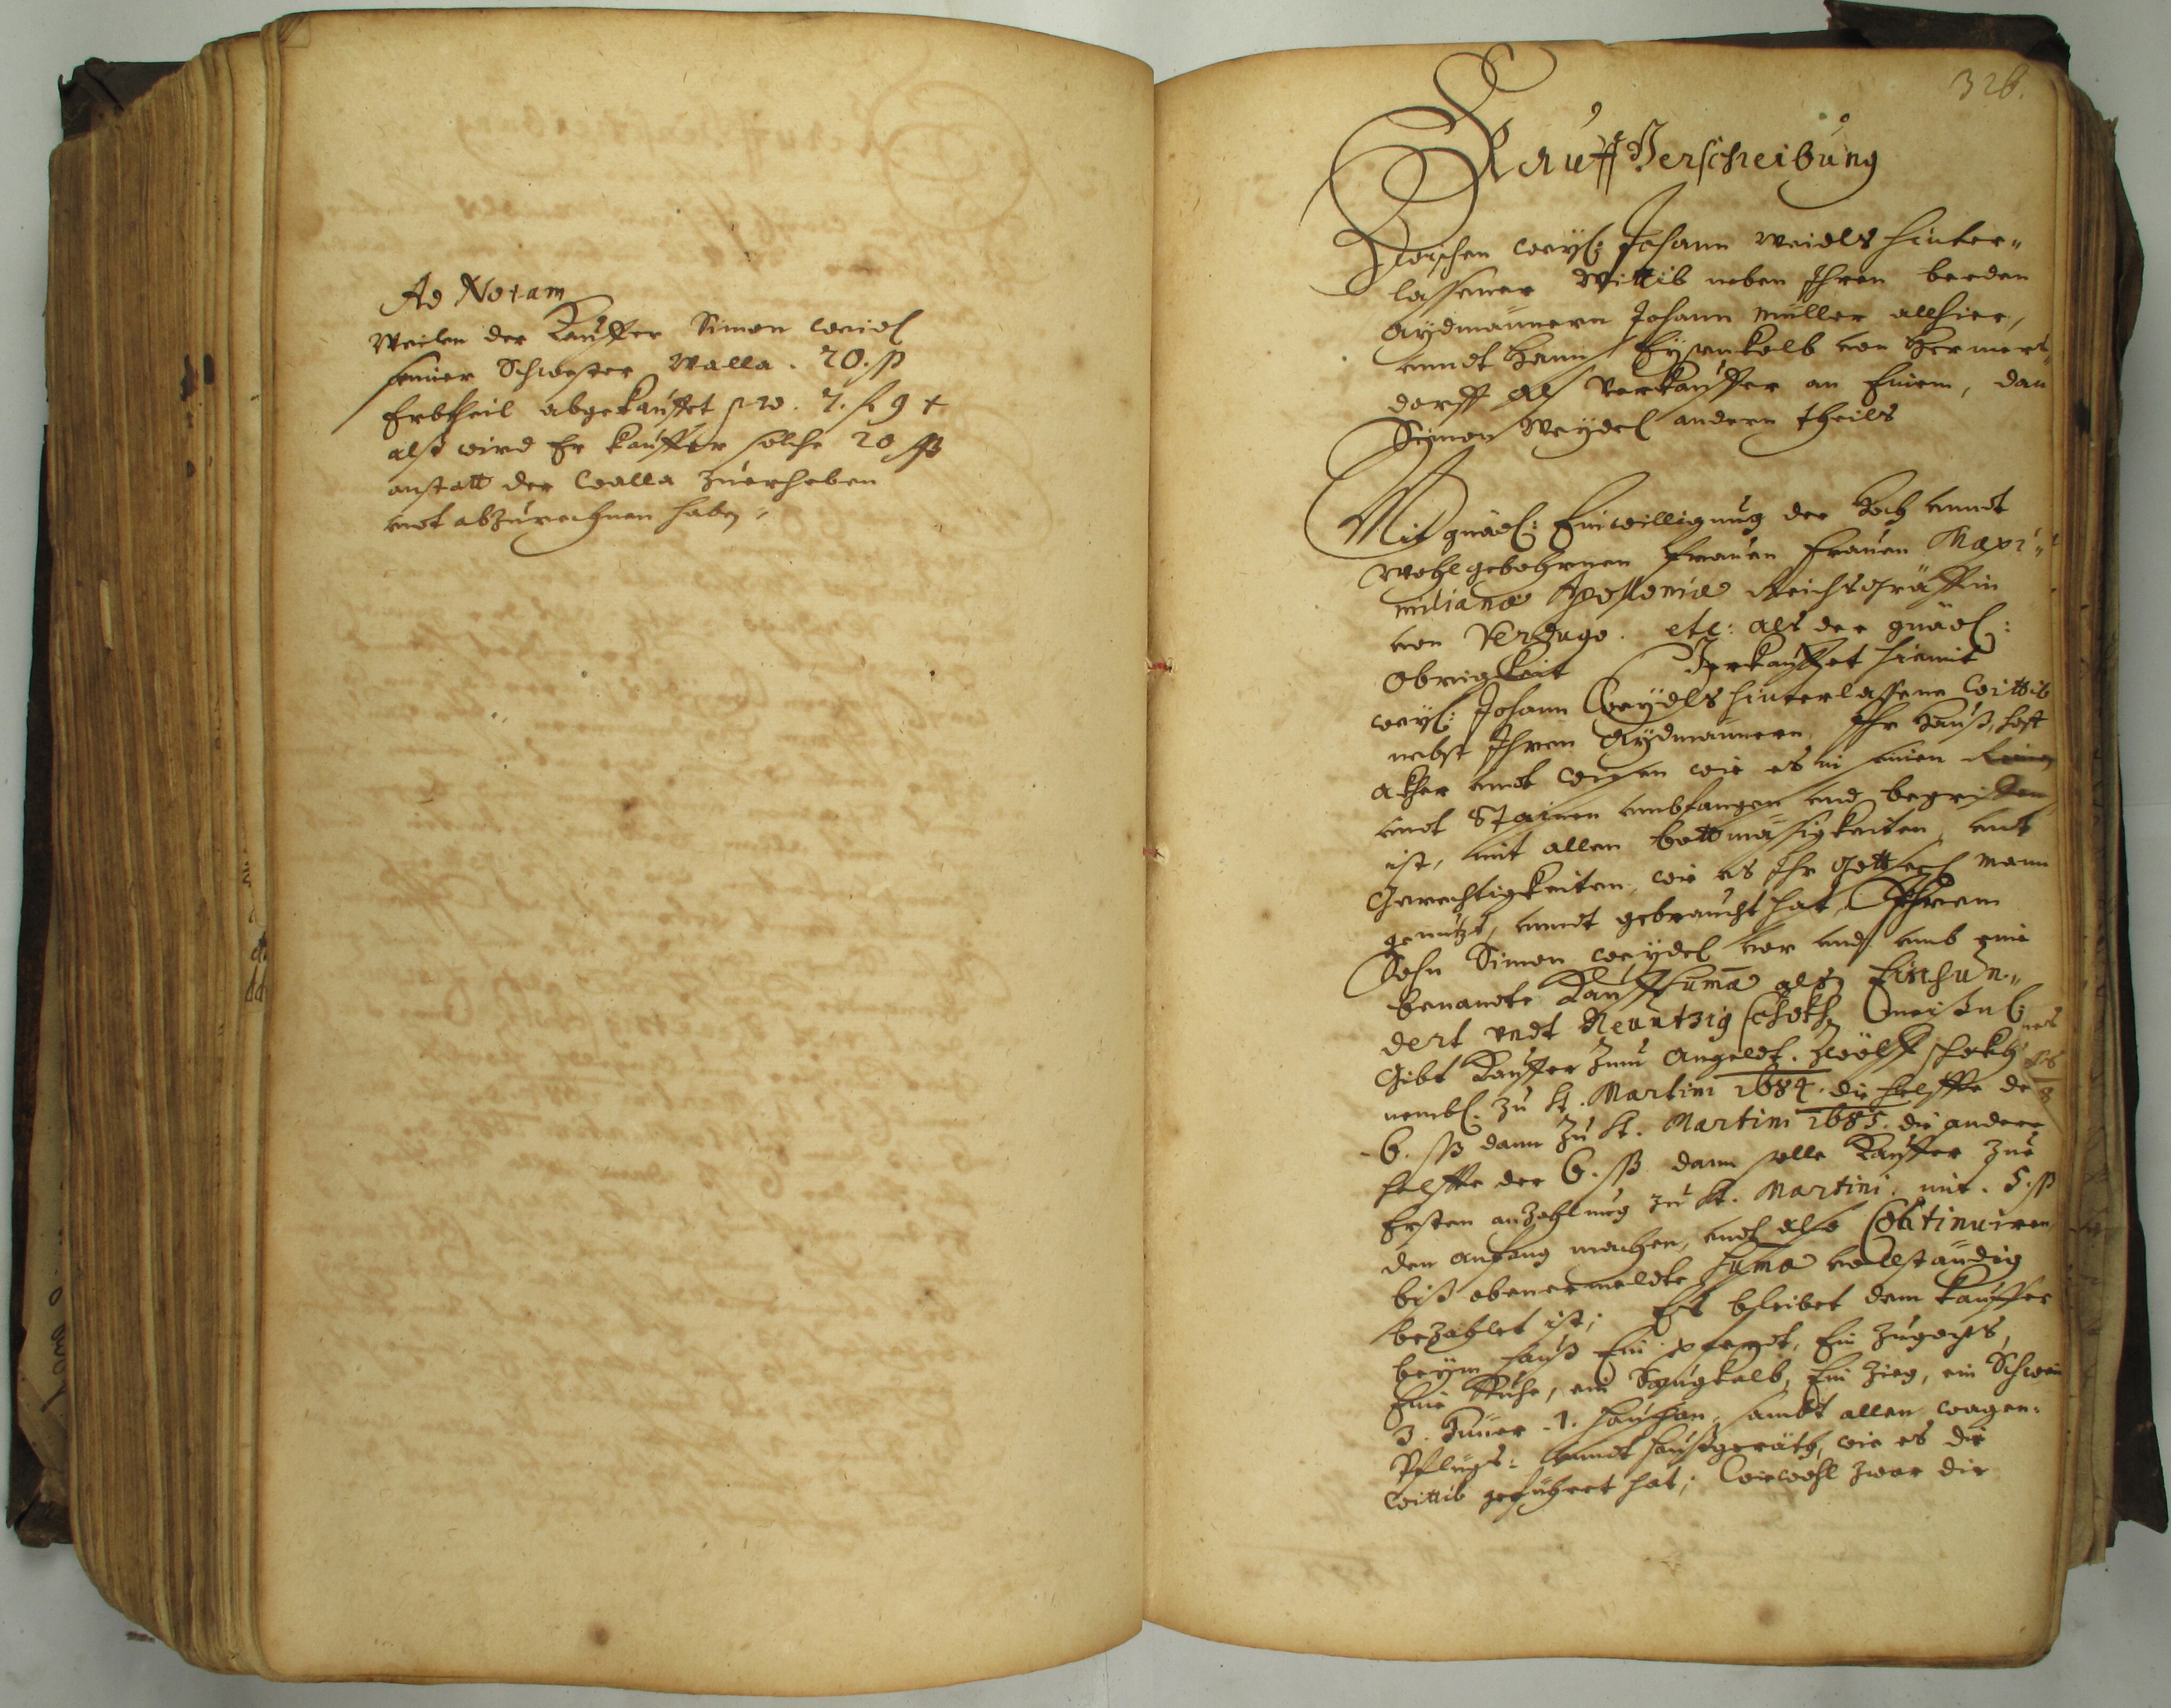 Ad Notam
Weilen der Kauffer Simon Weidl
seiner Schwester Walla. 20. ß
Erbtheil abgekauffet pro. 7. f. 9 x
alß wird Er Kauffer solche 20 ß
anstatt der Walla zuerheben
undt abzurechnen haben,
326.
Kauff Verschreibung
Zwischen weyl: Johann Weidls hinter„
lassener Wittib neben Ihren beeden
Aydmännern Johann Müller allhier,
unndt Hannß Eysenkolb von Hermerß„
dorff alß Verkauffer an Einem, dan
Symon Weydel andern theils
Mit gnädl: Einwilligung der Hoch unndt
Wohlgebohrnen Frauen Frauen Maxi„
miliana Apollonia Reichsgräffin
von Verdugo. etc: als der gnädl:
Obrigkeit Verkauffet hiemit
weyl: Johann Weydls hinterlassene Wittib
nebst Ihren Aydmännern Ihr Hauß, hoff
akher undt wiesen wie es in seinen Rainen
undt Stainen umbfangen und begriffen
ist, mit allen bottmäsigkeiten, undt
Gerechtigkeiten, wie es Ihr Gottseel Mann
genutzt, unndt gebraucht hat, Ihrem
Sohn Simon Weydel vor undt umb eine
benandte Kauff Suma als Einhun„
dert undt Neuntzig schokh Meißnl:
Gibt Kauffer zum Angeldt. Zwölff schokh
nembl. zu St. Martini 1684. die helffte der
6. ß dann zu St. Martini 1685. die andere
helffte der 6. ß dann solle Kauffer zue
Ersten anzahlung zu St. Martini. mit. 5. ß
den anfang machen, undt also Continuiren
biß obenermeldte Suma vollständig
bezahlet ist; Es bleibet dem Kauffer
beym hauß Ein Pferdt, Ein Zugochs,
Eine Kuhe, ein Saugkalb, Ein Zieg, ein Schwein
3. Hüner. 1. haußhan, sambt allen wagen:
Pflugs: unndt haußgeräth, wie es die
Wittib geführet hat; Wiewohl zwar die